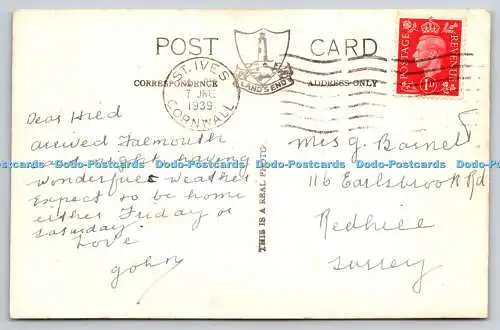 POST CARD
CORRESPONDENCE
ADDRESS ONLY
LAND'S END
ST. IVES
7 JNE
1939
CORNWALL
POSTAGE
REVENUE
1D
THIS IS A REAL PHOTO
Dear Hild
arrived Falmouth
having
wonderful weather
Expect to be home
either Friday or
Saturday.
Love
John
Mrs G. Barnet
116 Earlsbrook Rd
Redhill
Surrey
Dodo-Postcards Dodo-Postcards Dodo-Postcards Dodo-Postcards Dodo-Postcards Dodo-Postcards